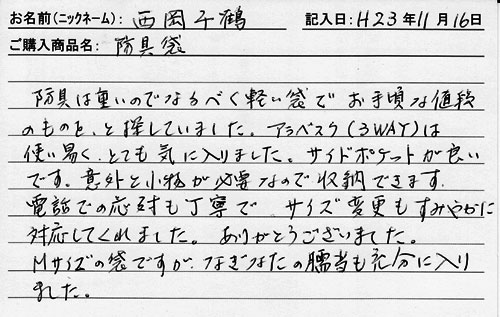 お名前(ニックネーム): 西岡千鶴 記入日: H23年11月16日
ご購入商品名: 防具袋
防具は重いのでなるべく軽い袋でお手頃な値段
のものを、と探していました。アラベスク(3WAY)は
使い易く、とても気に入りました。サイドポケットが良い
です。意外と小物が必要なので収納できます。
電話での応対も丁寧で サイズ変更もすみやかに
対応してくれました。ありがとうございました。
Mサイズの袋ですが、なぎなたの臑当も充分に入り
ました。